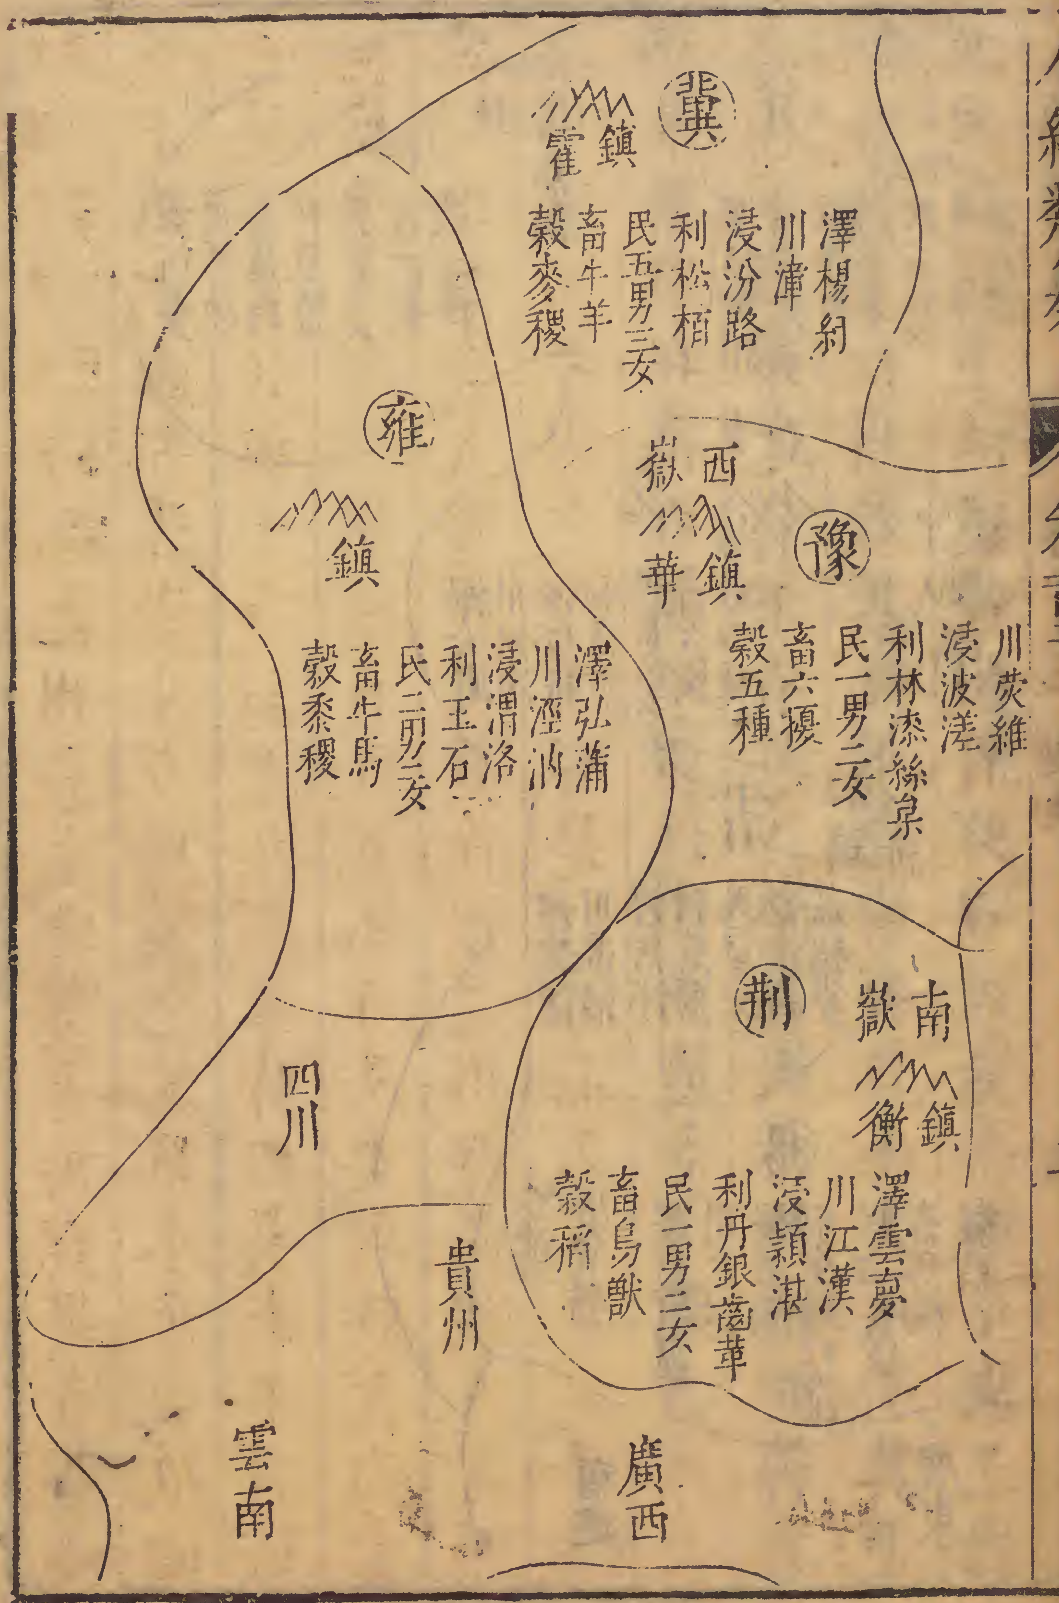 冀
鎮
霍
澤楊紆
川漳
浸汾路
利松栢
民五男三女
畜牛羊
穀麥稷
雍
鎮
澤弘蒲
川涇汭
浸渭洛
利玉石
民三男二女
畜牛馬
穀黍稷
西
嶽
鎮
華
豫
川熒雒
浸波溠
利林漆絲枲
民一男二女
畜六擾
穀五種
荆
南
嶽
鎮
衡
澤雲夢
川江漢
浸潁湛
利丹銀齒革
民一男二女
畜鳥獸
穀稻
四川
貴州
雲南
廣西